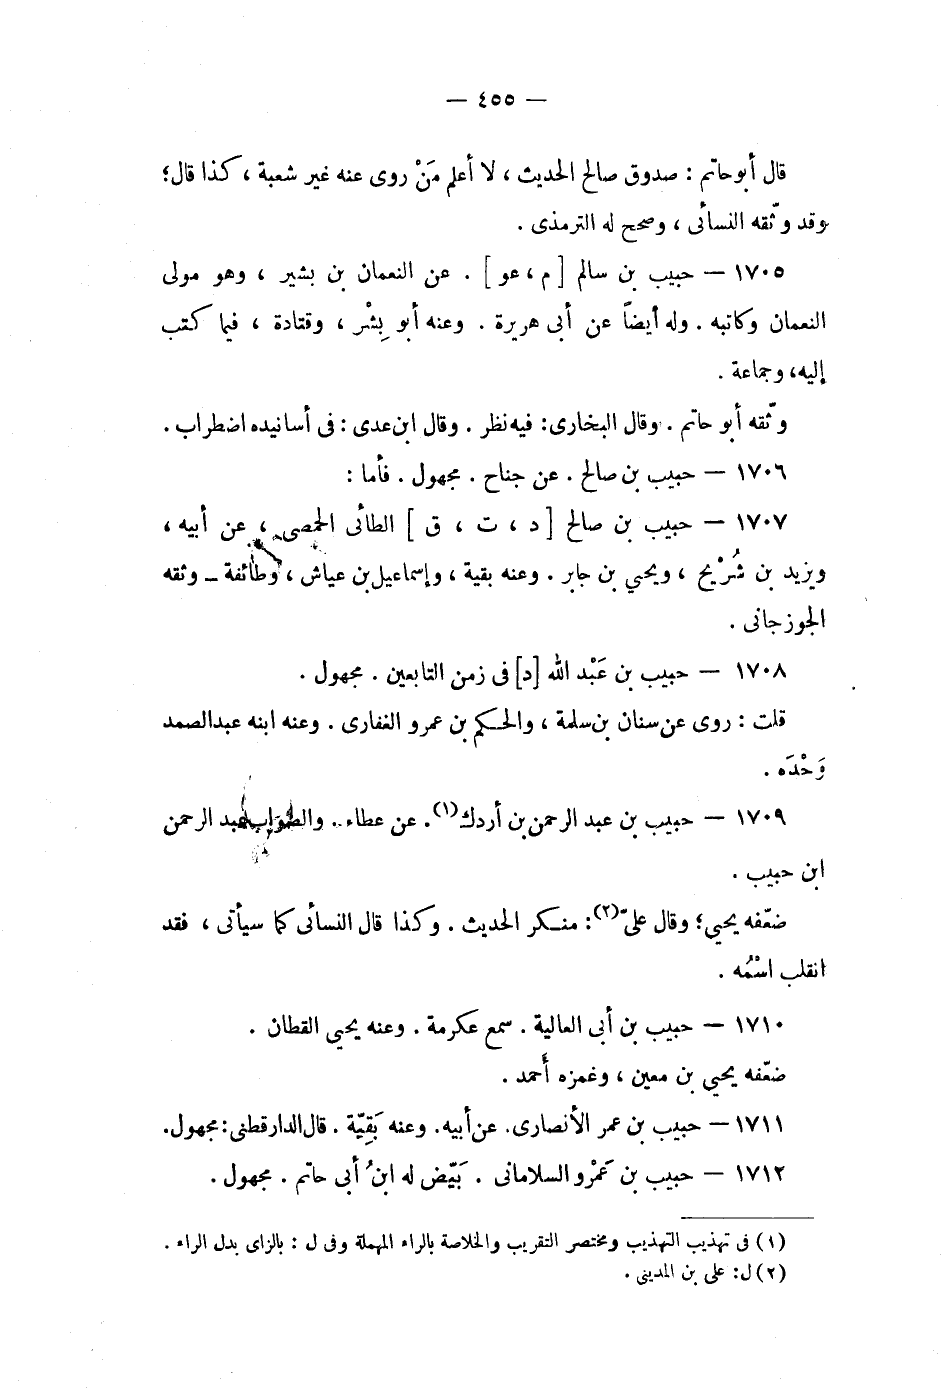 — ٤٥٥ —
قال أبو حاتم : صدوق صالح الحديث ، لا أعلم مَنْ روى عنه غير شعبة ، كذا قال؛
وقد وثّقه النسأئى ، وصحح له الترمذى .
١٧٠٥ — حبيب بن سالم [ م ، عو ] . عن النعمان بن بشير ، وهو مولى
النعمان وكاتبه . وله أيضاً عن أبى هريرة . وعنه أبو بِشْر ، وقتادة ، فيما كتب
إليه، وجماعة .
وثّقه أبو حاتم . وقال البخارى: فيه نظر . وقال ابن عدى : فى أسانيده اضطراب .
١٧٠٦ — حبيب بن صالح . عن جناح . مجهول . فأما :
١٧٠٧ — حبيب بن صالح [ د ، ت ، ق ] الطائى الحمصى ، عن أبيه ،
ويزيد بن شُرْيح ، ويحيي بن جابر . وعنه بقية ، وإسماعيل بن عياش ، وطائفة ــ وثقه
الجوزجانى .
١٧٠٨ — حبيب بن عَبْد الله [د] فى زمن التابعين . مجهول .
قلت : روى عن سنان بن سلمة ، والحكم بن عمرو الغفارى . وعنه ابنه عبدالصمد
وَحْدَه .
١٧٠٩ — حبيب بن عبد الرحمن بن أردك(١). عن عطاء .. والصواب عبد الرحمن
ابن حبيب .
ضعّفه يحيي؛ وقال علىّ(٢): منكر الحديث . وكذا قال النسائى كما سيأتى ، فقد
انقلب اسْمُه .
١٧١٠ — حبيب بن أبى العالية . سمع عكرمة . وعنه يحيي القطان .
ضعّفه يحيي بن معين ، وغمزه أحمد .
١٧١١ — حبيب بن عمر الأنصارى. عن أبيه. وعنه بَقِيّة . قال الدارقطنى: مجهول.
١٧١٢ — حبيب بن عَمْرو السلامانى . بَيّض له ابنُ أبى حاتم . مجهول .
(١) فى تهذيب التهذيب ومختصر التقريب والخلاصة بالراء المهملة وفى ل : بالزاى بدل الراء .
(٢) ل: على بن المدينى .